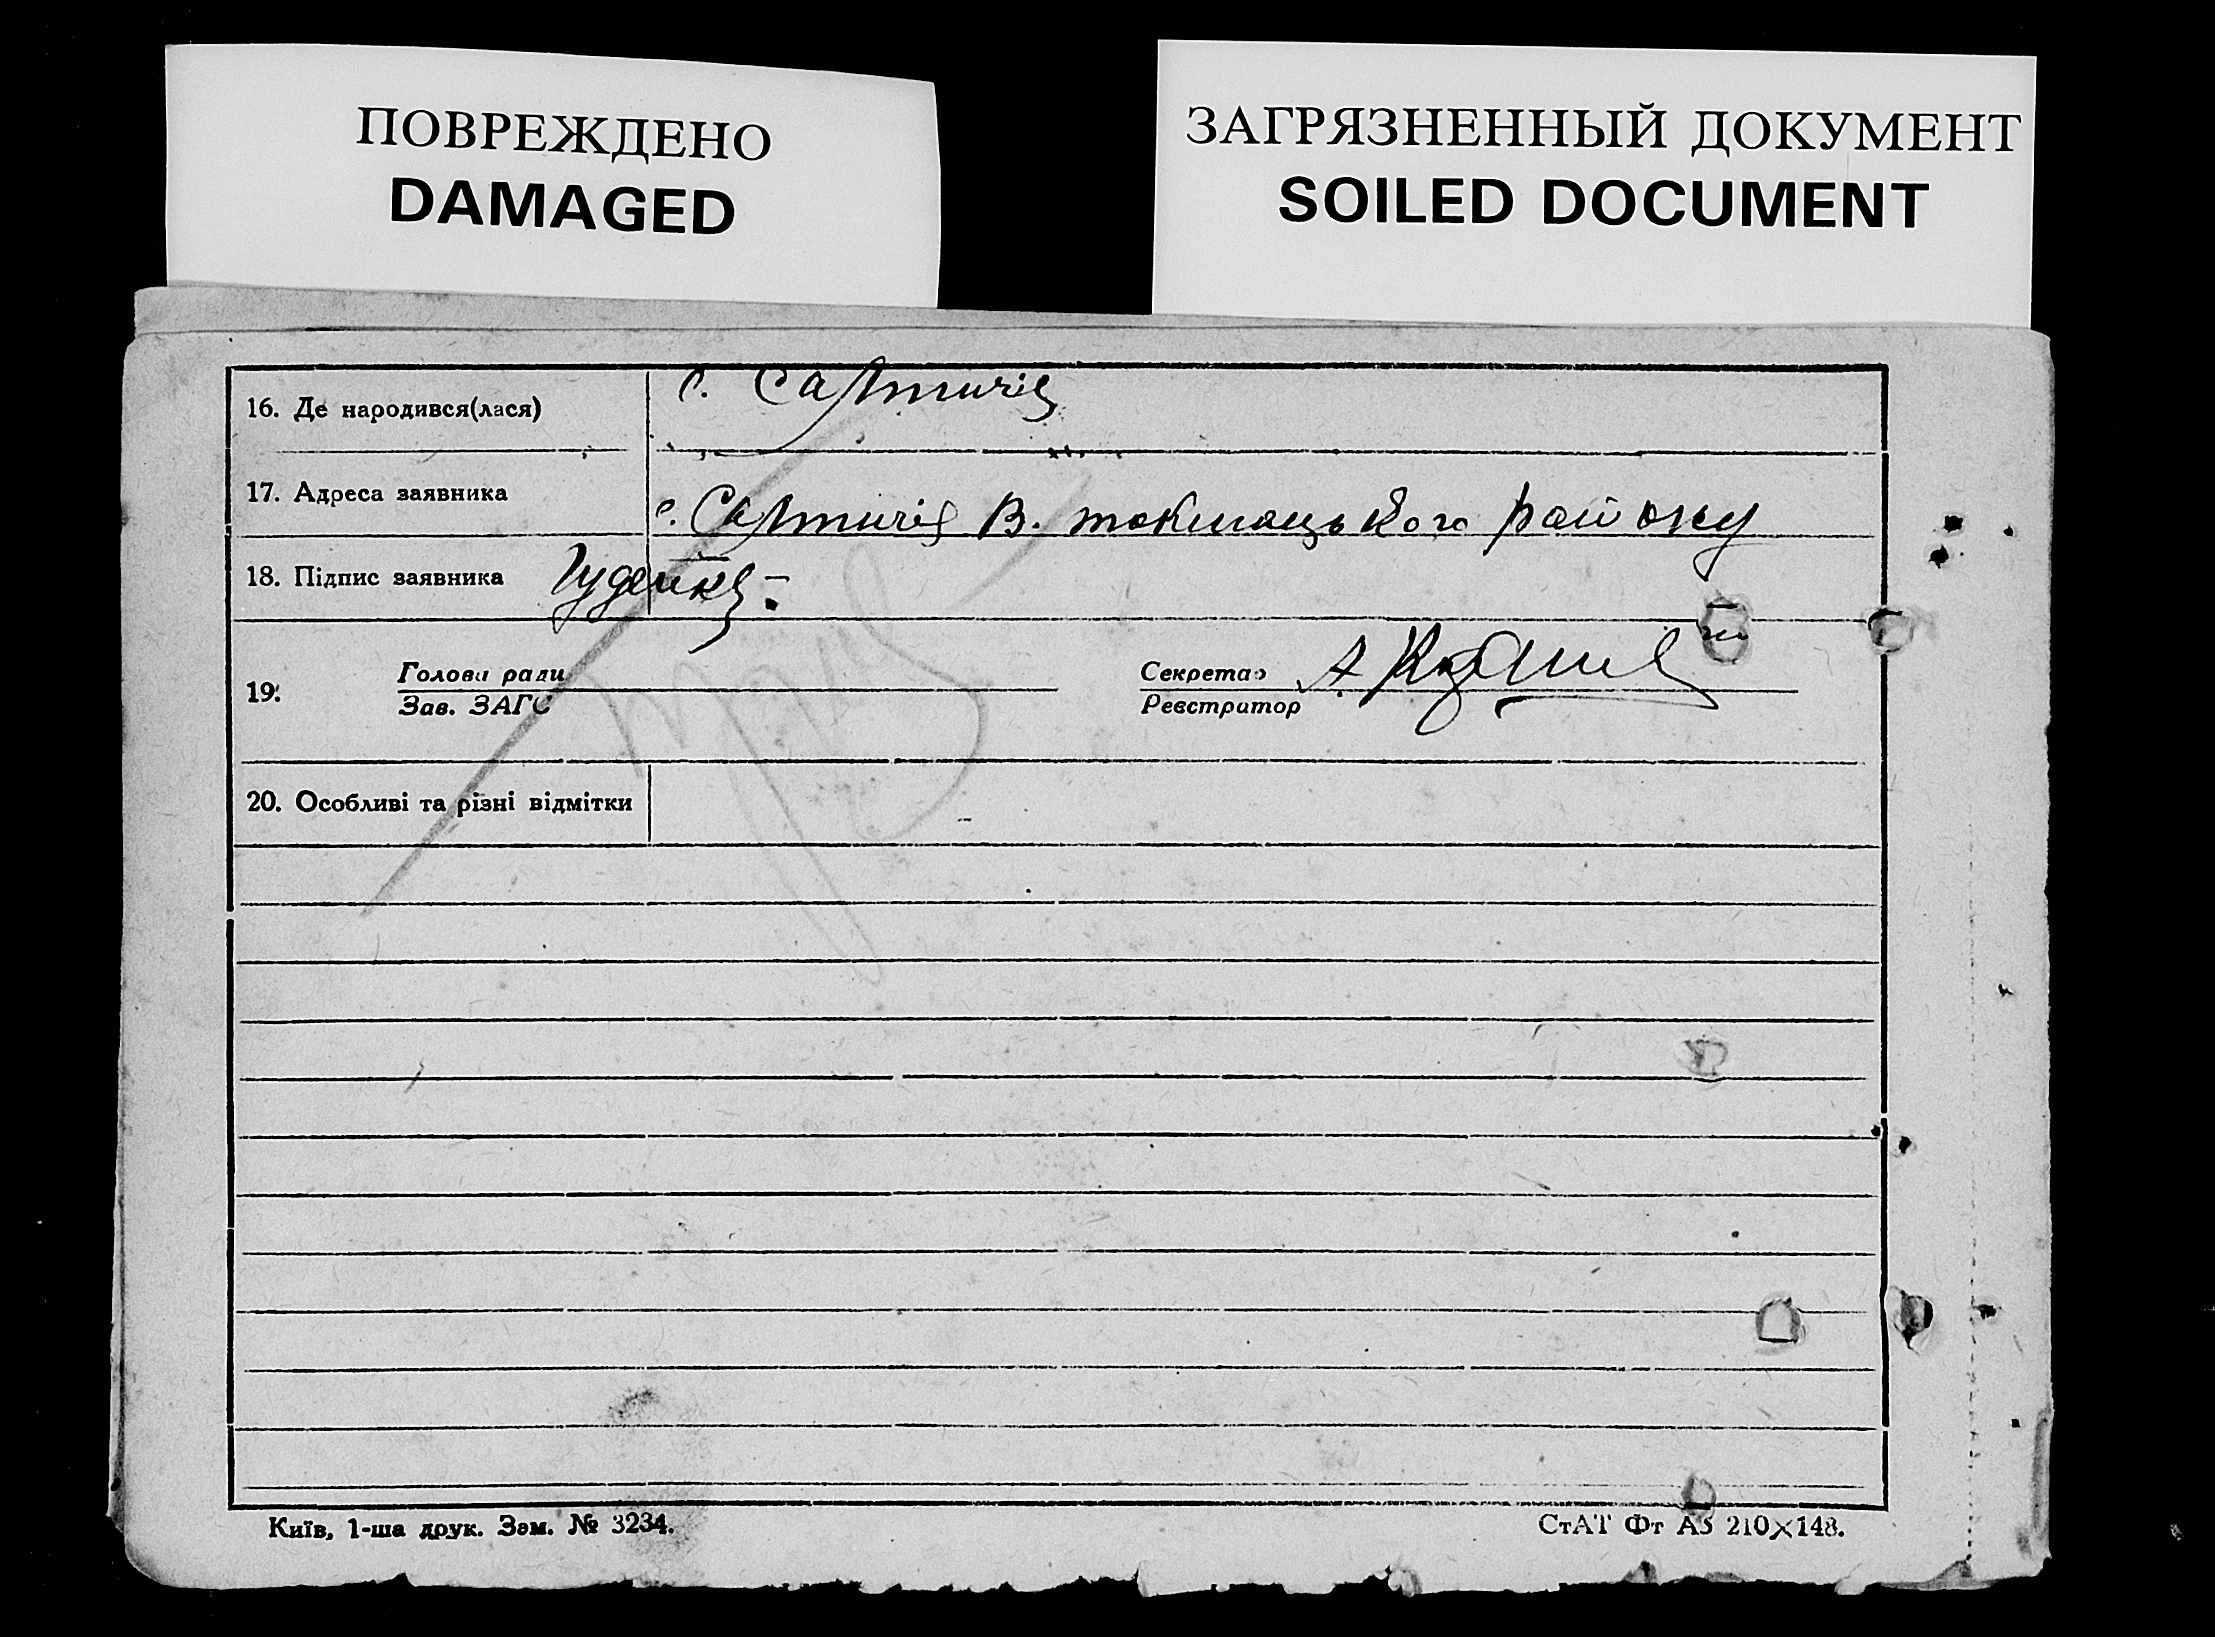 ПОВРЕЖДЕНО
DAMAGED
ЗАГРЯЗНЕННЫЙ ДОКУМЕНТ
SOILED DOCUMENT
16. Де народився(лася) с. Салтичія
17. Адреса заявника с. Салтичія В. токмацького району
18. Підпис заявника
19. Голова ради Секретар А.
Зав. ЗАГС Реєстратор
20. Особливі та різні відмітки
Київ, 1-ша друк. Зам. № 3234.
СтАТ Фт А5 210×148.